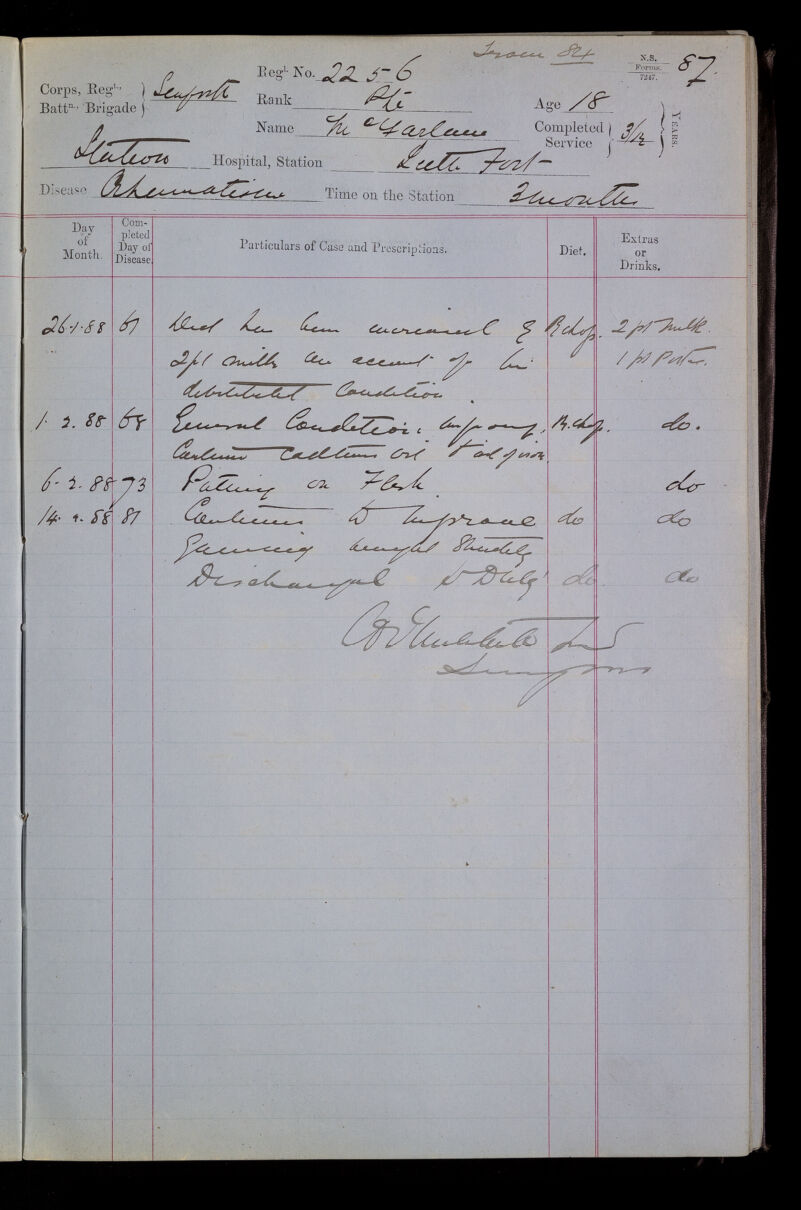 From 84
N.S. Forms. 7247.
87.
Corps, Regt., Battn., Brigade } Seaforth
Regl. No. 2256
Rank Pte
Age 18
Name McFarlane
Completed Service } 3/12 } YEARS.
Station Hospital, Station Leith Fort
Disease Rheumatism Time on the Station 3 months
Day of Month. Completed Day of Disease. Particulars of Case and Prescriptions. Diet. Extras or Drinks.
26.1.88 61 Diet has been increased & R chop. 2 pt Milk.
2pt milk on account of his 1 pt Porter.
debilitated Condition.
1. 2. 88 68 General Condition improving. R. chop. do.
Continue Cod liver oil
6. 2. 88 73 Putting on Flesh do
14. 2. 88 81 Continues to Improve do do
Gaining weight Steadily
Discharged to Duty do. do
Surgeon